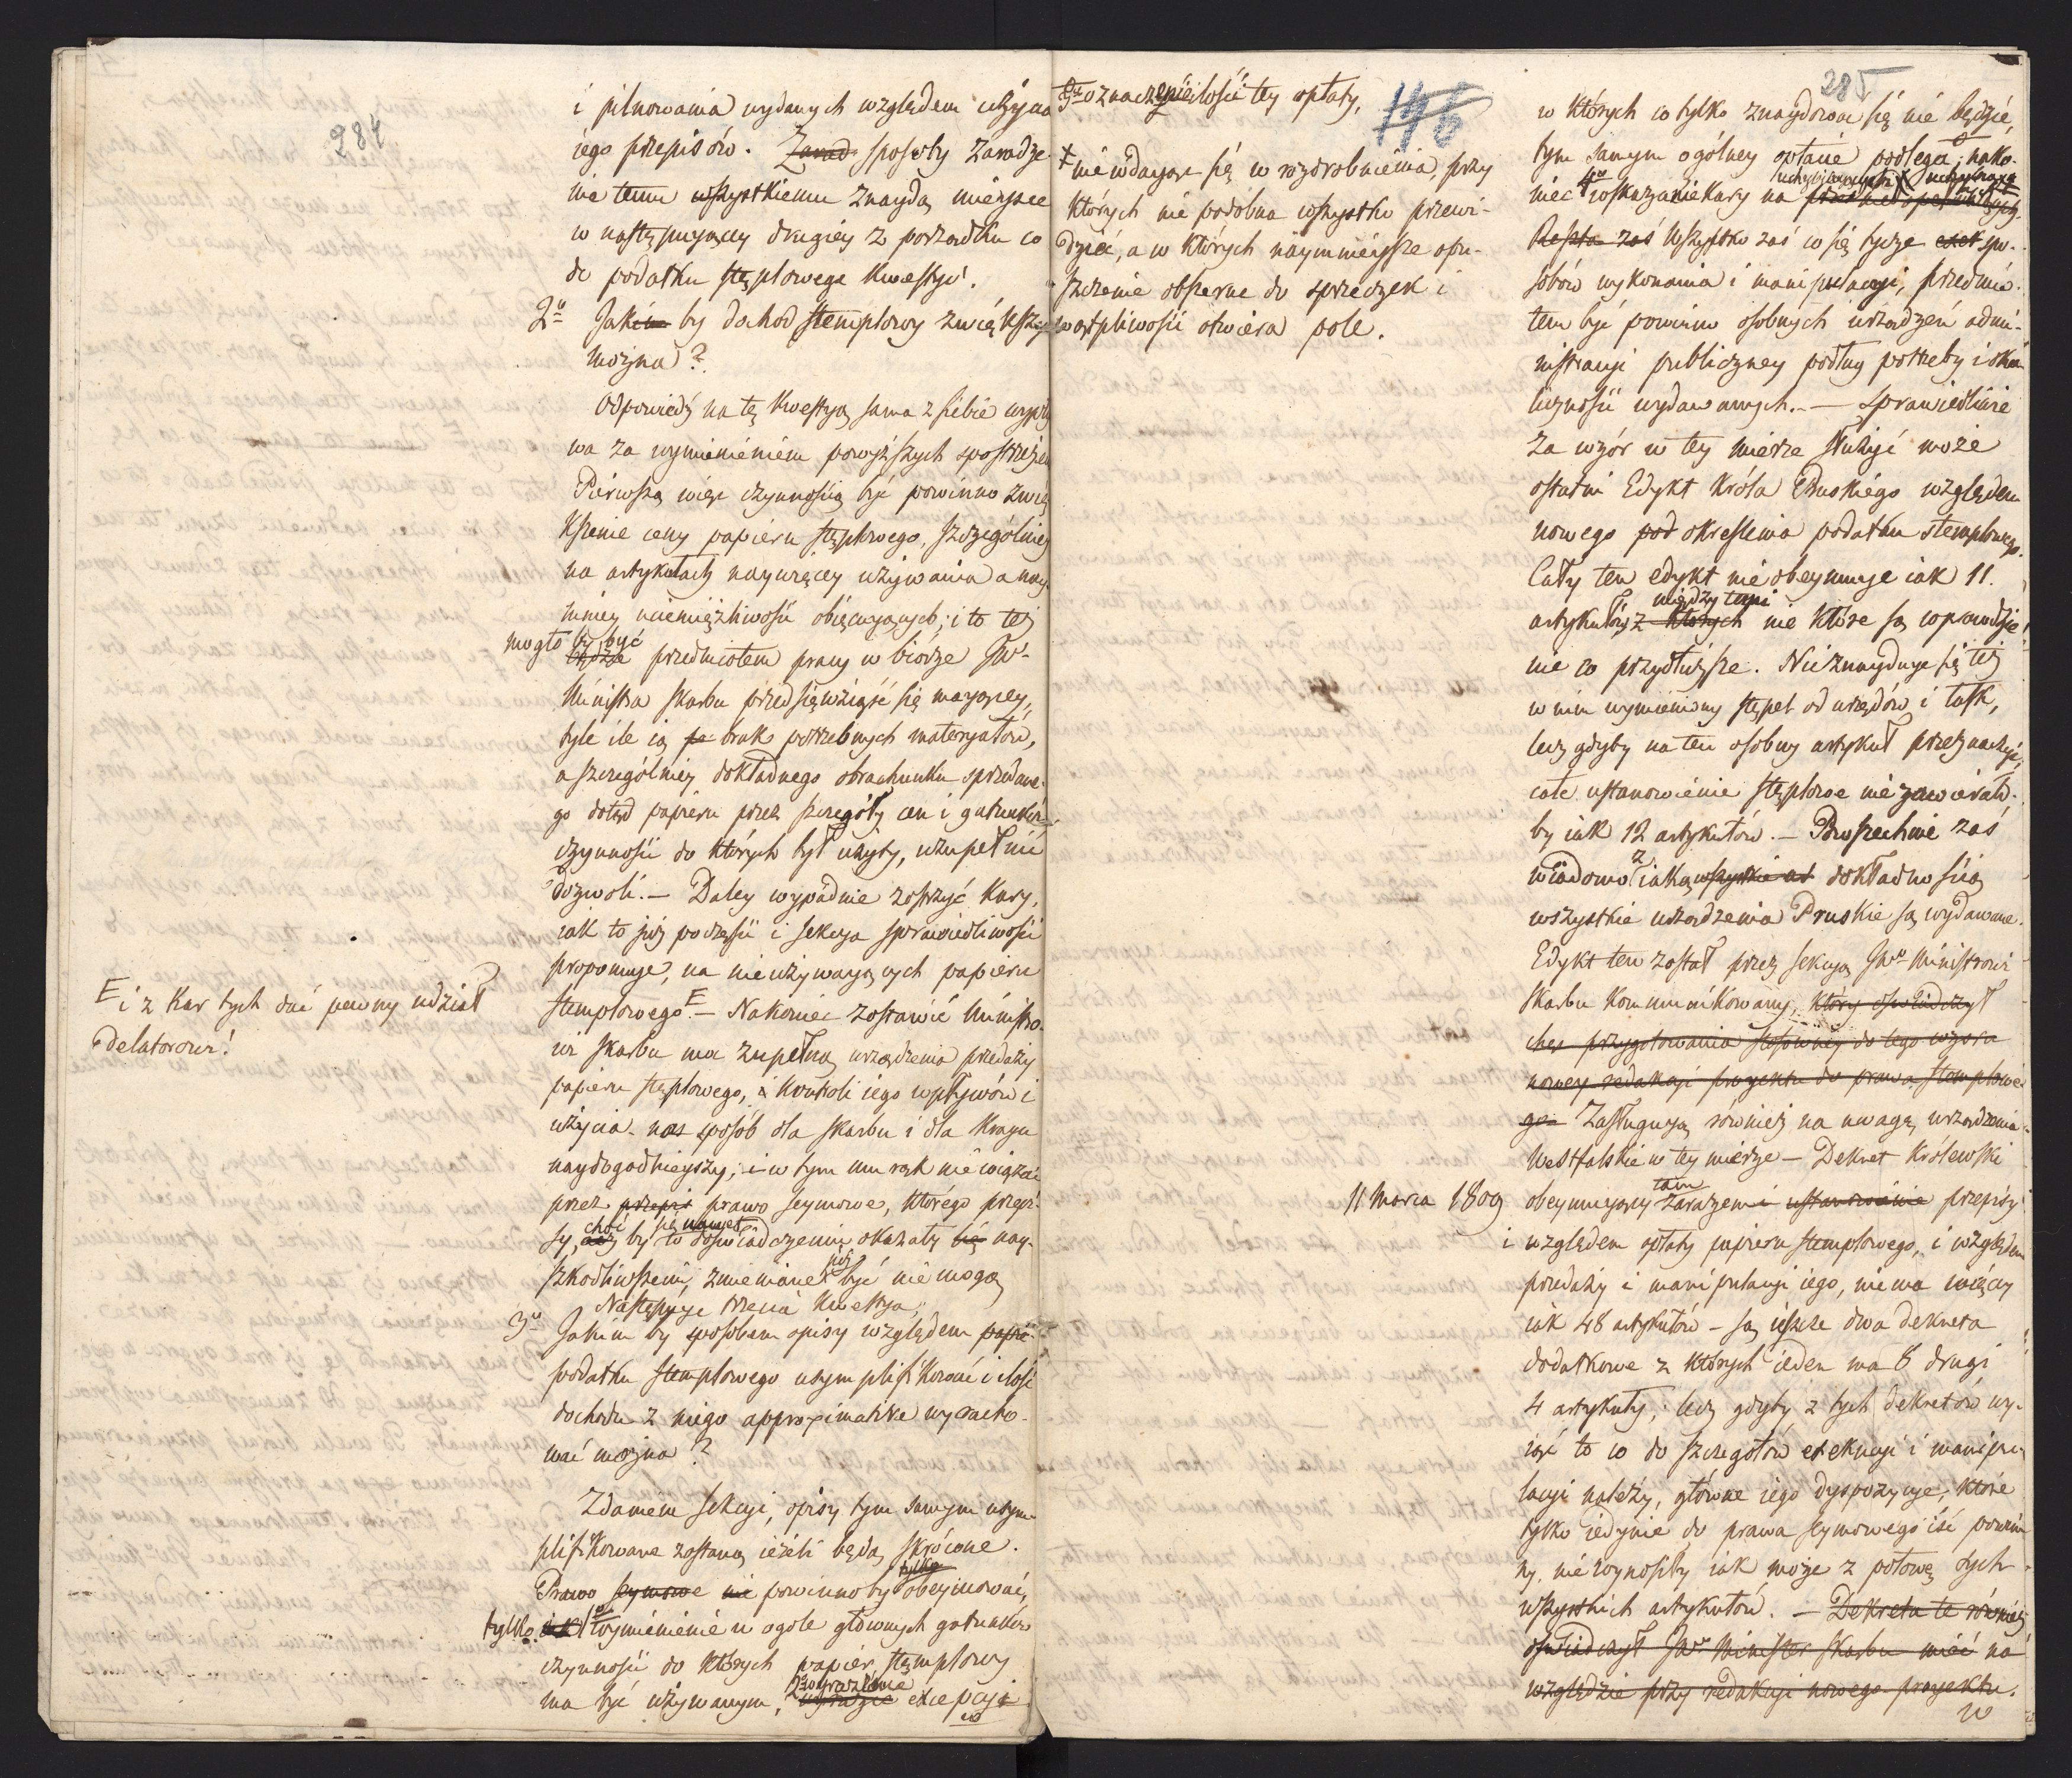 284
i pilnowania wydanych względem użycia
iego przepisów. Zarad sposoby zaradze-
nia temu wszystkiemu znaydą mieysce
w następuiącey drugiey z porządku co
do podatku stęplowego kwestyi.
2º Jakim by dochod stemplowy zwiększyć
można?
Odpowiedź na tę kwestyą sama z siebie wypły
wa za wymienieniem powyższych spostrzeżeń
Pierwszą więc czynnością być powinno zwię
kszenie ceny papieru stęplowego, szczególniey
na artykułach naywięcey używania a nay
mniey uciemiężliwości obiecuiących; i to też
mogło by być
będzie przedmiotem pracy w biórze JW-
Ministra skarbu przedsięwziąść się maiącey,
tyle ile ią brak potrzebnych materyałów,
a szczególniey dokładnego obrachunku sprzedane-
go dotąd papieru przez szczegóły cen i gatunków
czynności do których był użyty, uzupełnić
dozwoli. — Daley wypadnie zostrzyć kary,
iak to już poczęści i sekcya sprawiedliwości
proponuie, na nieużywaiących papieru
stemplowego. E — Nakoniec zostawić Ministro-
wi skarbu ma zupełną urządzenia przedaży
papieru stęplowego, i kontroli iego wpływów i
użycia sposób dla skarbu i dla kraiu
naydogodnieyszy; i w tym mu rąk nie wiązać
przez przepi prawo seymowe, którego przepi-
sy, choć by się nawet to doświadczeniu okazały się nay-
szkodliwszemi, zmienione już być nie mogą
Następuie trzecia kwestya:
3º Jakim by sposobem opisy względem papie-
podatku stemplowego usymplifikować i ilość
dochodu z niego approximative wyracho-
wać można?
Zdaniem sekcyi, opisy tym samym usym-
plifikowane zostaną ieżeli będą skrócone.
tylko
Prawo seymowe nie powinno by obeymować,
tylko iak 1º wymienienie w ogóle głównych gatunków
czynności do których papier stęplowy
ma być używanym, 2º wyrażenie excepcyi
w
E i z kar tych dać pewny udział
delatorowi!
3º oznaczenie ilości tey opłaty,
146
‡ nie wdaiąc się w rozdrobnienia, przy
których nie podobna wszystko przewi-
dzieć, a w których naymnieysze opu-
szczenie obszerne do sprzeczek i
wątpliwości otwiera pole.
285
w których co tylko znaydować się nie będzie,
tym samym ogólney opłacie podlega; nako-
niec 4º wskazanie kary na
Reszta zaś Wszystko zaś co się tycze exek spo-
sobów wykonania i manipulacyi, przedmio-
tem być powinno osobnych urządzeń admi-
nistracyi publiczney podług potrzeby i oko-
liczności wydawanych. — Sprawiedliwie
za wzór w tey mierze służyć może
ostatni Edykt Króla Pruskiego względem
nowego pod określenia podatku stemplowego.
Cały ten edykt nie obeymuie iak 11.
między temi
artykułów z których nie które są wprawdzie
nie co przydłuższe. Nieznayduie się też
w nim wymieniony stępel od urzędów i łask,
lecz gdyby na ten osobny artykuł przeznaczyć,
całe ustanowienie stęplowe nie zawierało-
by iak 12 artykułów. — Powszechnie zaś
wiadomo z iaką wszystkie ur dokładnością
wszystkie urządzenia Pruskie są wydawane.
Edykt ten został przez sekcyą JWº Ministrowi
skarbu kommunikowany, który oświadczył
chęć przygotowania stosowney do tego wzoru
nowey redakcyi proyektu do prawa stemplowe-
go Zasługuią również na uwagę urządzenia
Westfalskie w tey mierze — Dekret Królewski
11 Marca 1809 obeymuiący tam zarazem i ustanowienie przepisy
i względem opłaty papieru stemplowego, i względem
przedaży i manipulacyi iego, nie ma więcey
iak 48 artykułów — są ieszcze dwa dekreta
dodatkowe z których ieden ma 8 drugi
4 artykuły; lecz gdyby z tych dekretów wy-
iąć to co do szczegółów exekucyi i manipu-
lacyi należy, główne iego dyspozycye, które
tylko iedynie do prawa seymowego iść powin
ny, nie wynosiły iak może z połowę tych
wszystkich artykułów. — Dekreta te również
oświadczył JWº Minister skarbu mieć na
względzie przy redakcyi nowego proyektu.
W